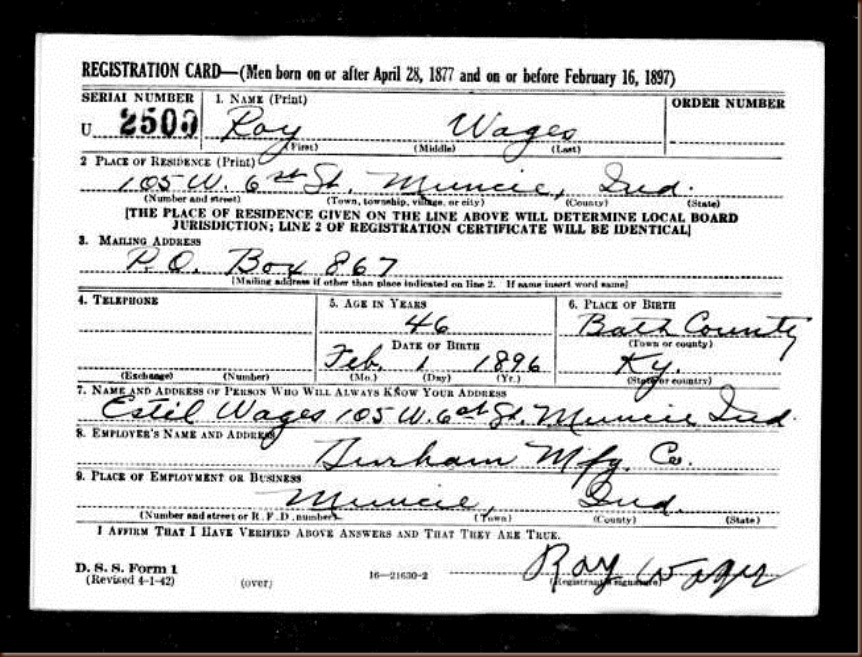 REGISTRATION CARD—(Men born on or after April 28, 1877 and on or before February 16, 1897)
SERIAL NUMBER 1. NAME (Print) ORDER NUMBER
U 2500 Roy Wages
(First) (Middle) (Last)
2 PLACE OF RESIDENCE (Print)
105 W. 6st St. Muncie, Ind.
(Number and street) (Town, township, village, or city) (County) (State)
[THE PLACE OF RESIDENCE GIVEN ON THE LINE ABOVE WILL DETERMINE LOCAL BOARD
JURISDICTION; LINE 2 OF REGISTRATION CERTIFICATE WILL BE IDENTICAL]
3. MAILING ADDRESS
P.O. Box 867
[Mailing address if other than place indicated on line 2. If same insert word same]
4. TELEPHONE 5. AGE IN YEARS 6. PLACE OF BIRTH
46 Bath County
DATE OF BIRTH (Town or county)
Feb. 1 1896 Ky.
(Exchange) (Number) (Mo.) (Day) (Yr.) (State or country)
7. NAME AND ADDRESS OF PERSON WHO WILL ALWAYS KNOW YOUR ADDRESS
Estil Wages 105 W. 6st St. Muncie Ind.
8. EMPLOYER'S NAME AND ADDRESS
Durham Mfg. Co.
9. PLACE OF EMPLOYMENT OR BUSINESS
Muncie, Ind.
(Number and street or R. F. D. number) (Town) (County) (State)
I AFFIRM THAT I HAVE VERIFIED ABOVE ANSWERS AND THAT THEY ARE TRUE.
Roy Wages
D. S. S. Form 1
(Revised 4-1-42) (over) 16—21630-2 (Registrant's signature)